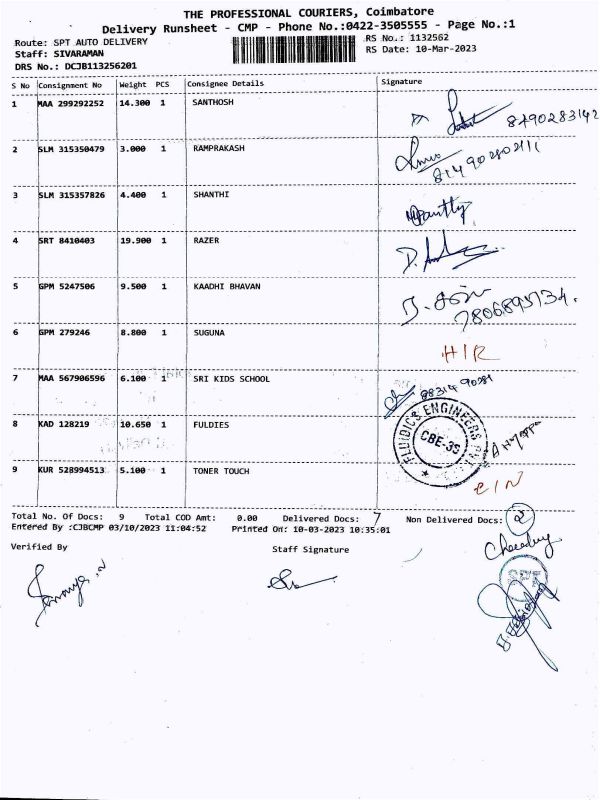 THE PROFESSIONAL COURIERS, Coimbatore
Delivery Runsheet - CMP - Phone No.:0422-3505555 - Page No.:1
Route: SPT AUTO DELIVERY RS No.: 1132562
Staff: SIVARAMAN RS Date: 10-Mar-2023
DRS No.: DCJB113256201
S No Consignment No Weight PCS Consignee Details Signature
1 MAA 299292252 14.300 1 SANTHOSH
8790283142
2 SLM 315350479 3.000 1 RAMPRAKASH
3 SLM 315357826 4.400 1 SHANTHI
4 SRT 8410403 19.900 1 RAZER
5 GPM 5247506 9.500 1 KAADHI BHAVAN
7806895734.
6 GPM 279246 8.800 1 SUGUNA
HIR
7 MAA 567906596 6.100 1 SRI KIDS SCHOOL
8 KAD 128219 10.650 1 FULDIES
FLUIDICS ENGINEERS PVT
CBE-35
9 KUR 528994513 5.100 1 TONER TOUCH
Total No. Of Docs: 9 Total COD Amt: 0.00 Delivered Docs: 7 Non Delivered Docs: 2
Entered By :CJBCMP 03/10/2023 11:04:52 Printed On: 10-03-2023 10:35:01
Verified By Staff Signature
SPT